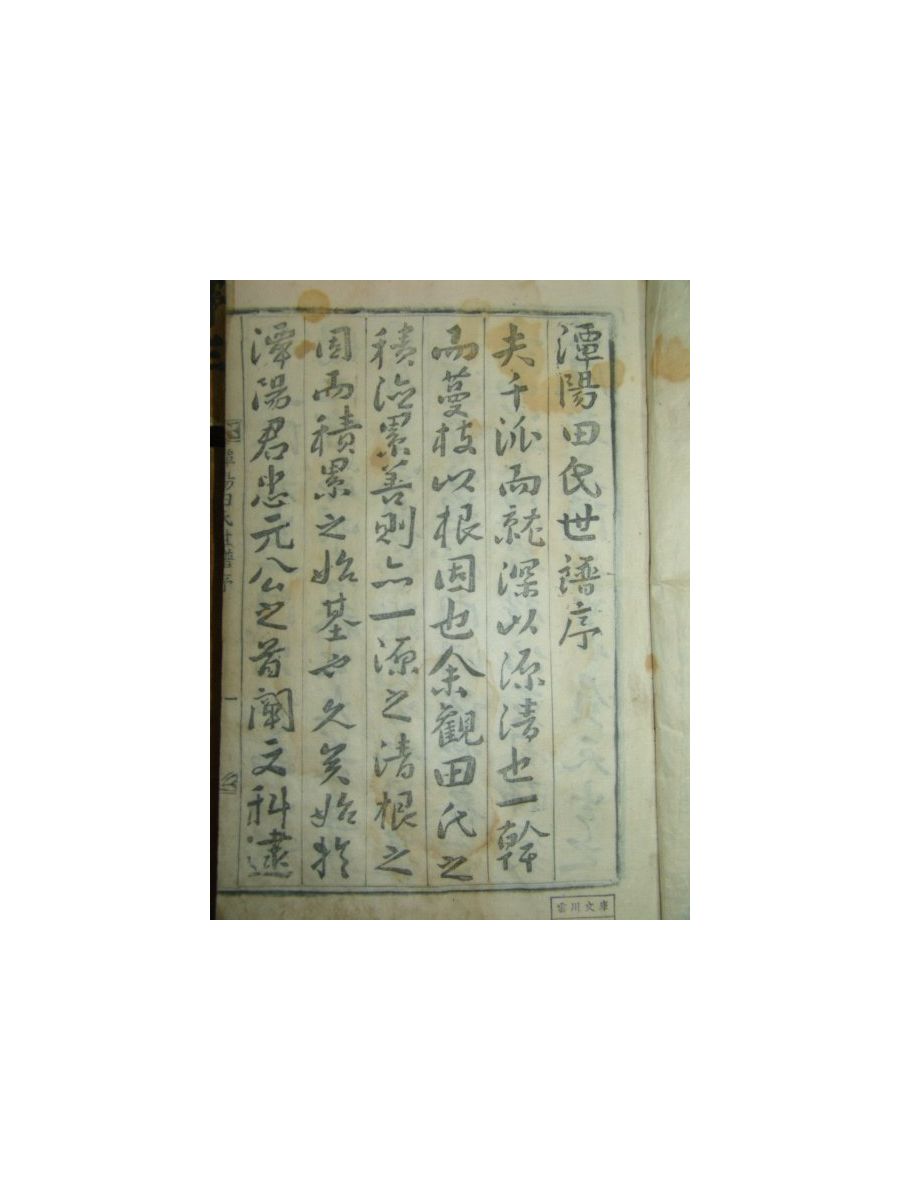 潭陽田氏世譜序
夫千派而就深以源清也一幹
而蔓枝以根固也余觀田氏之
積德累善則亦一源之清根之
固而積累之始基也久矣始於
潭陽君忠元公之首闡文科逮
潭陽田氏世譜序
一
雲川文庫